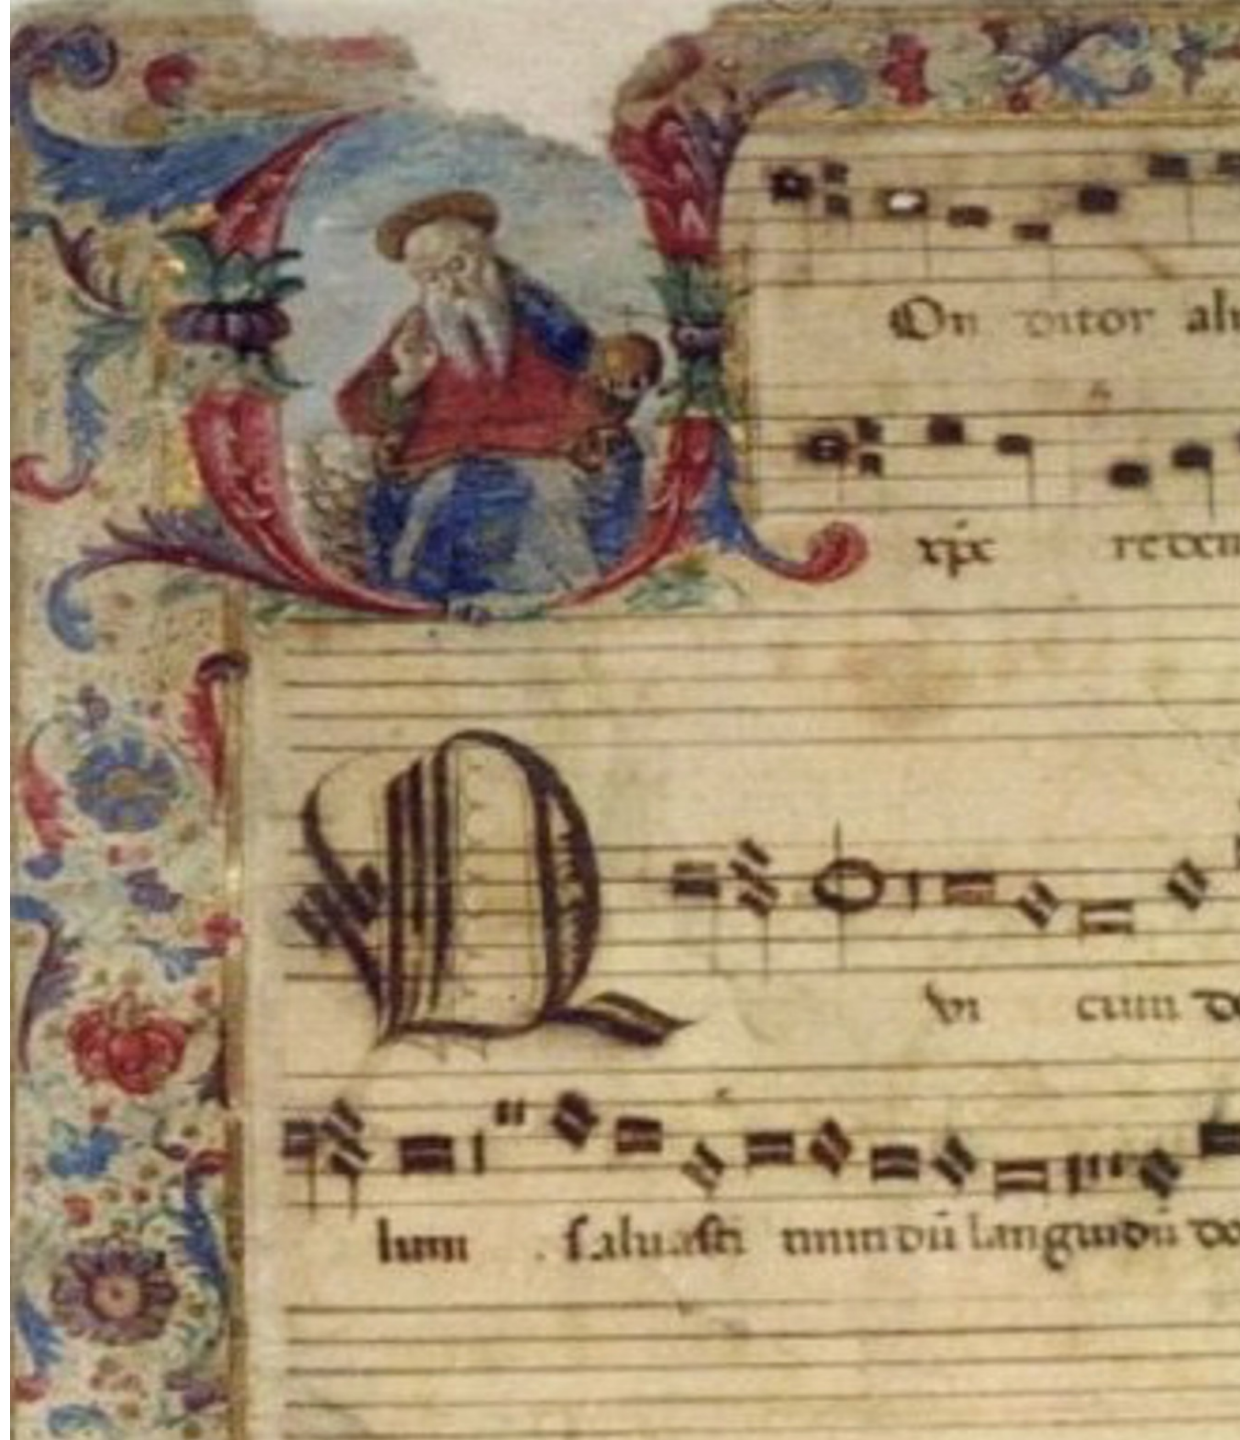 On ditor alm
xp̄e redem
Q vi cum do
lum . saluasti mundū languidū do